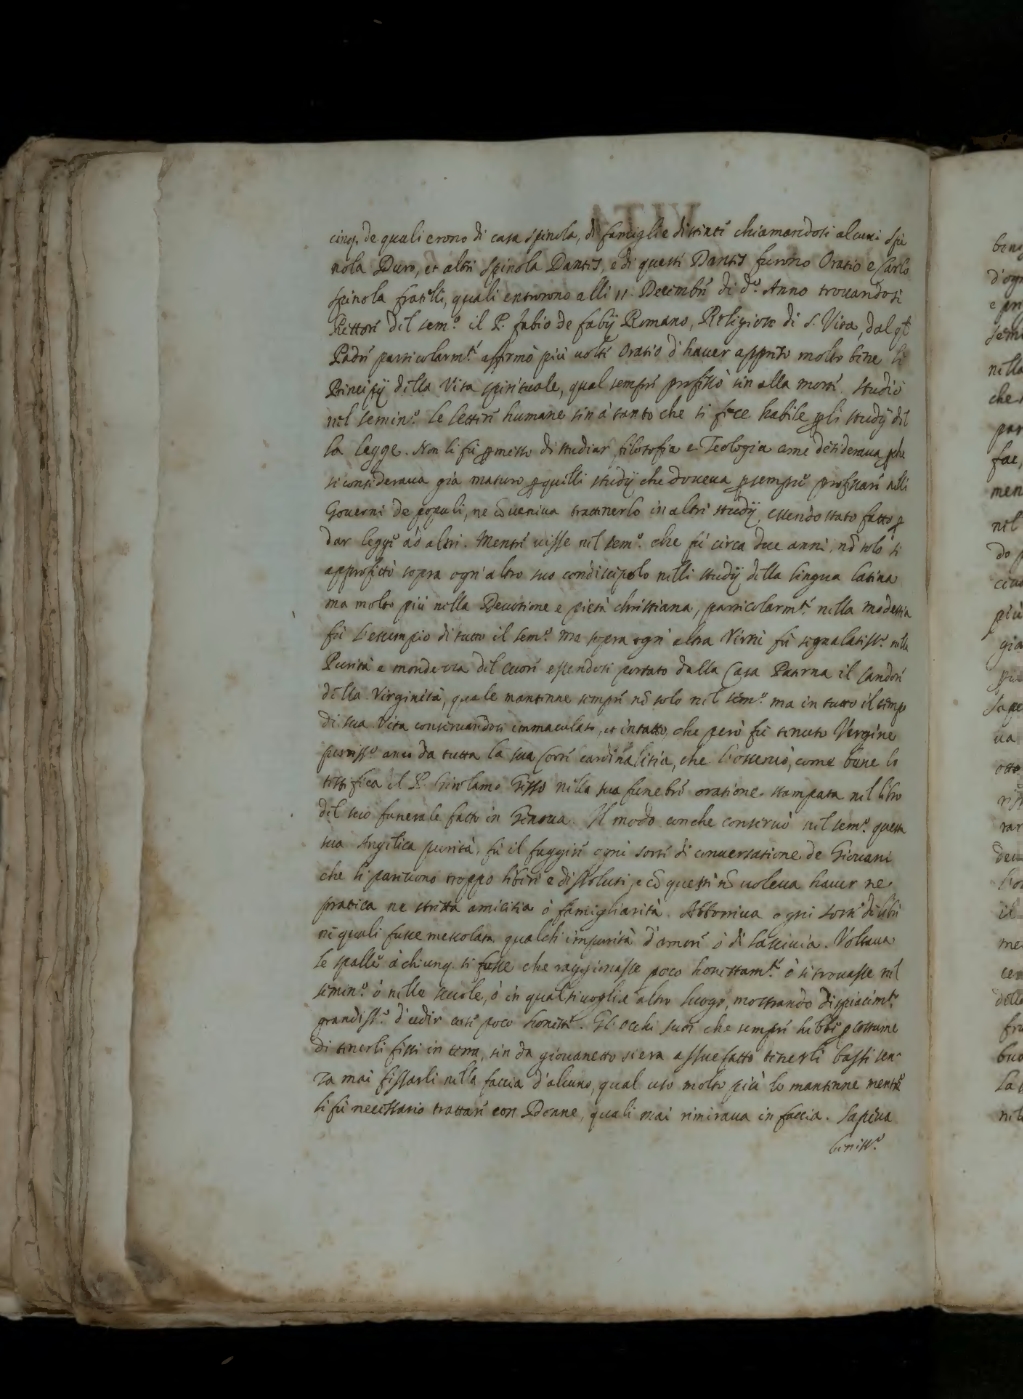 cinq. de quali erono di casa Spinola, di famiglie distinti chiamandosi alcuni Spi
nola Duro, et altri Spinola Dantis, e di questi Dantis furono Oratio e Carlo
Spinola fratelli, quali entrorono alli 11 Decembre di d.º Anno trovandosi
Rettore del sem.º il P. fabio de fabij Romano, Religioso di S. Vita, dal ql
Padre particolarm.te affirmò più volte Oratio d'haver appreso molto bene li
Principij della Vita spirituale, qual sempre professò sin alla morte. Studiò
nel semin.º le lettere humane sin à tanto che si fece habile p li studij del
la legge. Non li fù pmesso di studiar filosofia e Teologia come desiderava pche
si considerava già maturo p quelli studij che doveva p sempre professare nelli
Governi de popoli, ne cōveniva trattenerlo in altri studij, essendo stato fatto p
dar leggi ad altri. Mentre visse nel sem.º che fù circa doe anni, nō solo si
approfittò sopra ogn'altro suo condiscipolo nelli studij della lingua latina
ma molto più nella Devotione e pietà christiana, particolarm.te nella modestia
fù l'essempio di tutto il sem.º ma sopra ogni altra Virtù fù segnalatiss.º nella
Purità e mondezza del cuore essendosi portato dalla Casa Paterna il candore
della Virginità, quale mantenne sempre nō solo nel sem.º ma in tutto il tempo
di sua Vita conservandosi immaculato, et intatto, che però fù tenuto Vergine
puriss.º anco da tutta la sua Corte cardinalitia, che l'osservò, come bene lo
testifica il P. Girolamo nella sua funebre oratione stampata nel libro
del suo funerale fatto in Genova. Il modo con che conservò nel sem.º questa
sua Angelica purità, fù il fuggire ogni sorte di conversatione de Giovani
che li parevono troppo liberi e dissoluti, e cō questi nō voleva haver ne
pratica ne stretta amicitia ò famigliarità. Abboriva ogni sorte di libri
ne quali fusse mescolata qualche impurità d'amori ò di lascivia. Voltava
le spalle à chiunq. si fusse che raggionasse poco honestam.te ò si trovasse nel
semin.º ò nelle scuole, ò in qualsivoglia altro luogo, mostrando dispiacim.to
grandiss.º d'udir cose poco honeste. Gli occhi suoi che sempre hebbe p costume
di tenerli fissi in terra, sin da giovanetto si era assuefatto tenerli bassi sen-
za mai fissarli nella faccia d'alcuno, qual uso molto più lo mantenne mentre
li fù necessario trattare con Donne, quali mai rimirava in faccia. Sapeva
beniss.º